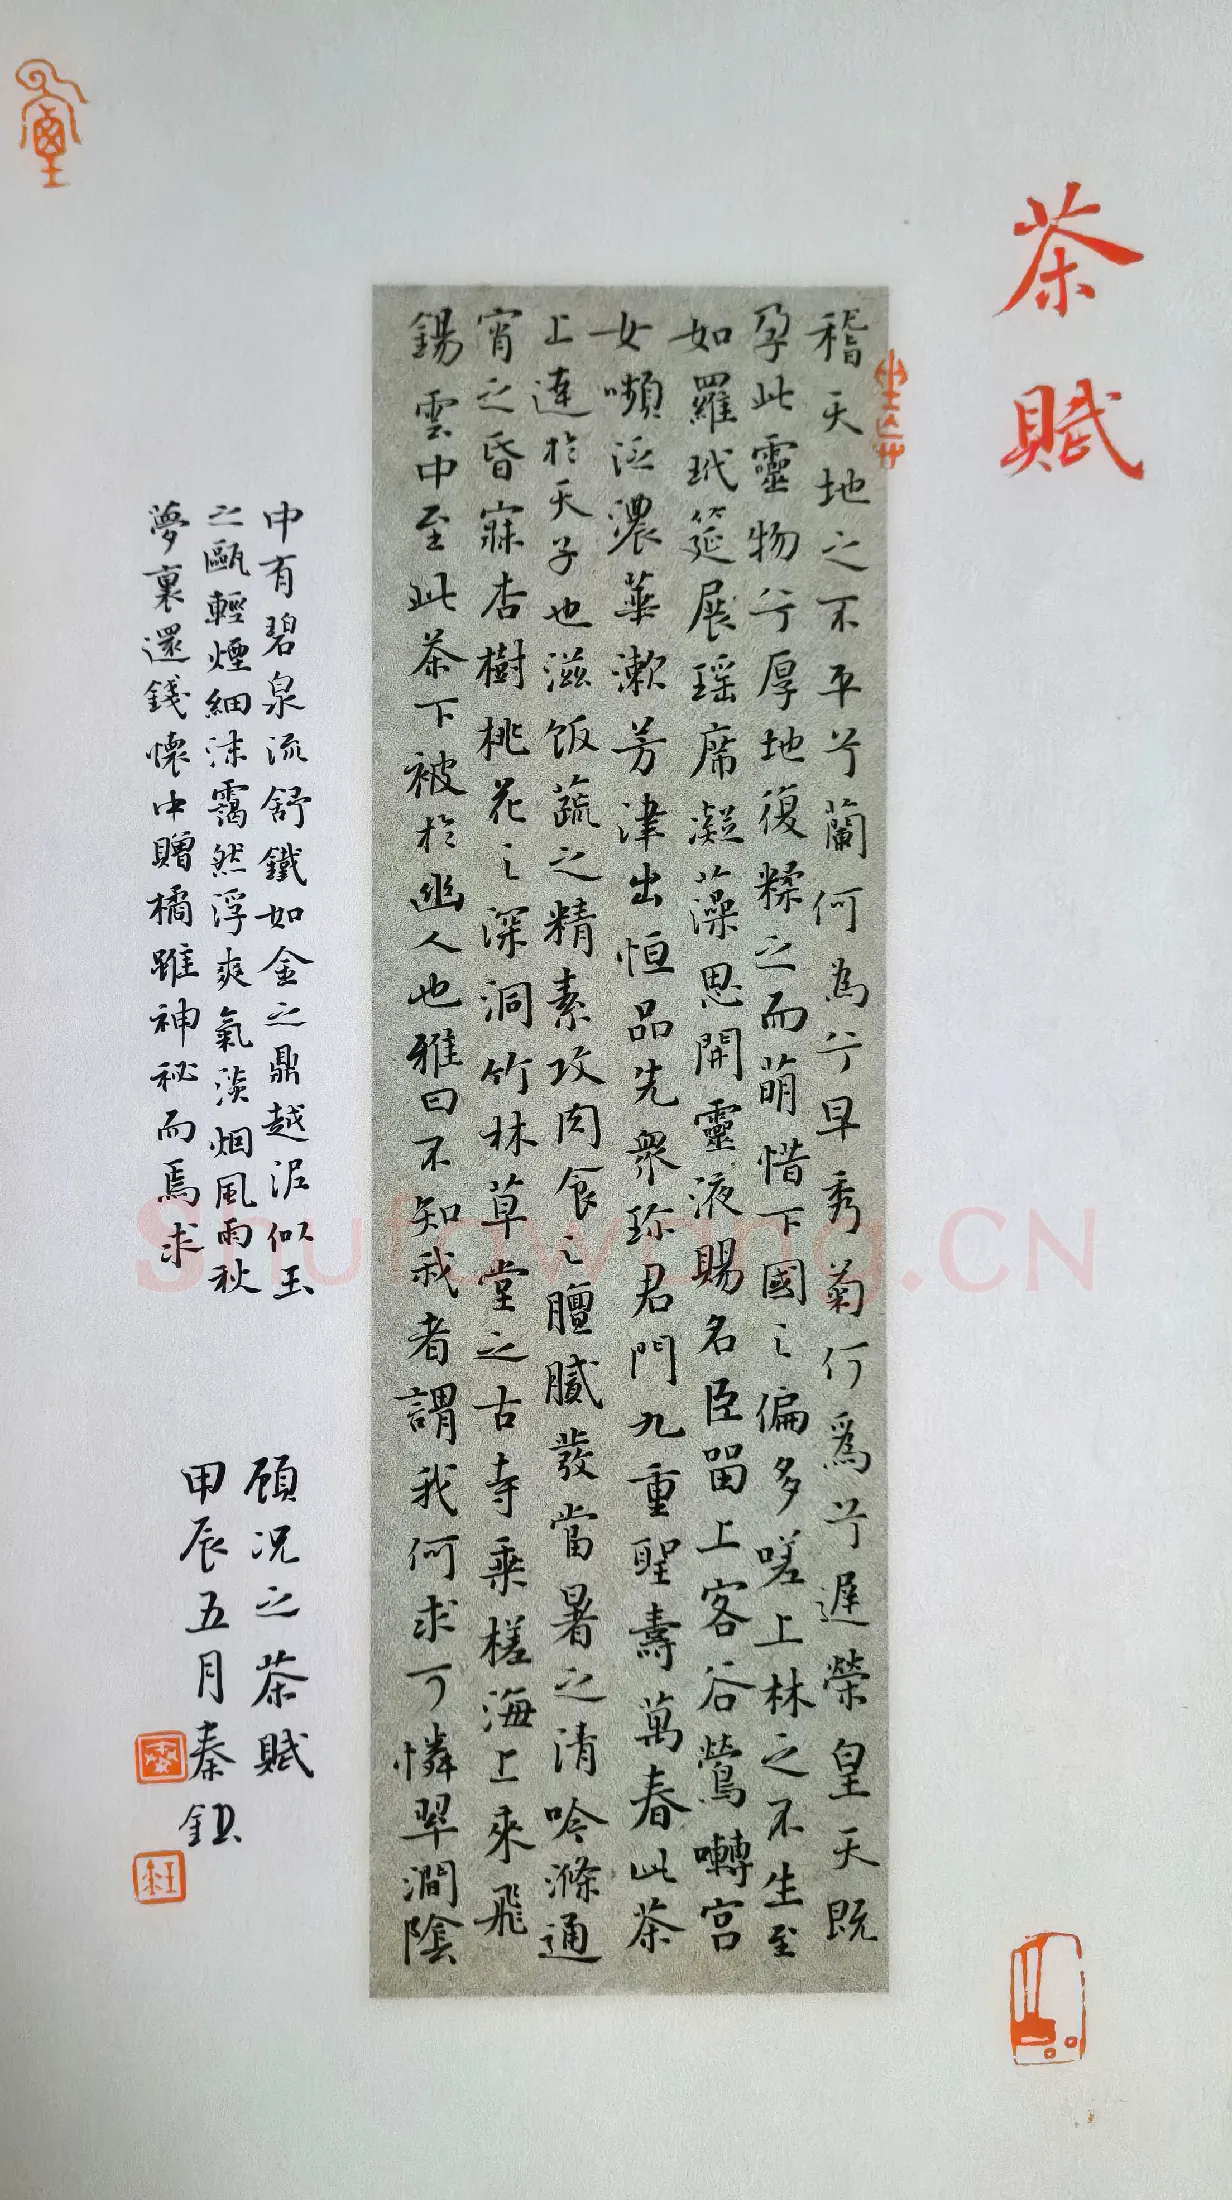 茶賦
稽天地之不平兮蘭何為兮早秀菊何爲兮遲榮皇天既
孕此靈物兮厚地復糅之而萌惜下國之偏多嗟上林之不生至
如羅玳筵展瑶席凝藻思開靈液賜名臣留上客谷鶯囀宫
女嚬泛濃華漱芳津出恒品先衆珎君門九重聖壽萬春此茶
上達於天子也滋饭蔬之精素攻肉食之膻膩發當暑之清吟滌通
宵之昏寐杏樹桃花之深洞竹林草堂之古寺乘槎海上来飛
錫雲中至此茶下被於幽人也雅曰不知我者謂我何求可憐翠澗陰
中有碧泉流舒鐵如金之鼎越泥似玉
之甌輕煙細沫靄然浮爽氣淡烟風雨秋
夢裏還錢懷中贈橘雖神秘而焉求
顾况之茶賦
甲辰五月秦鈺
Shufawang.CN